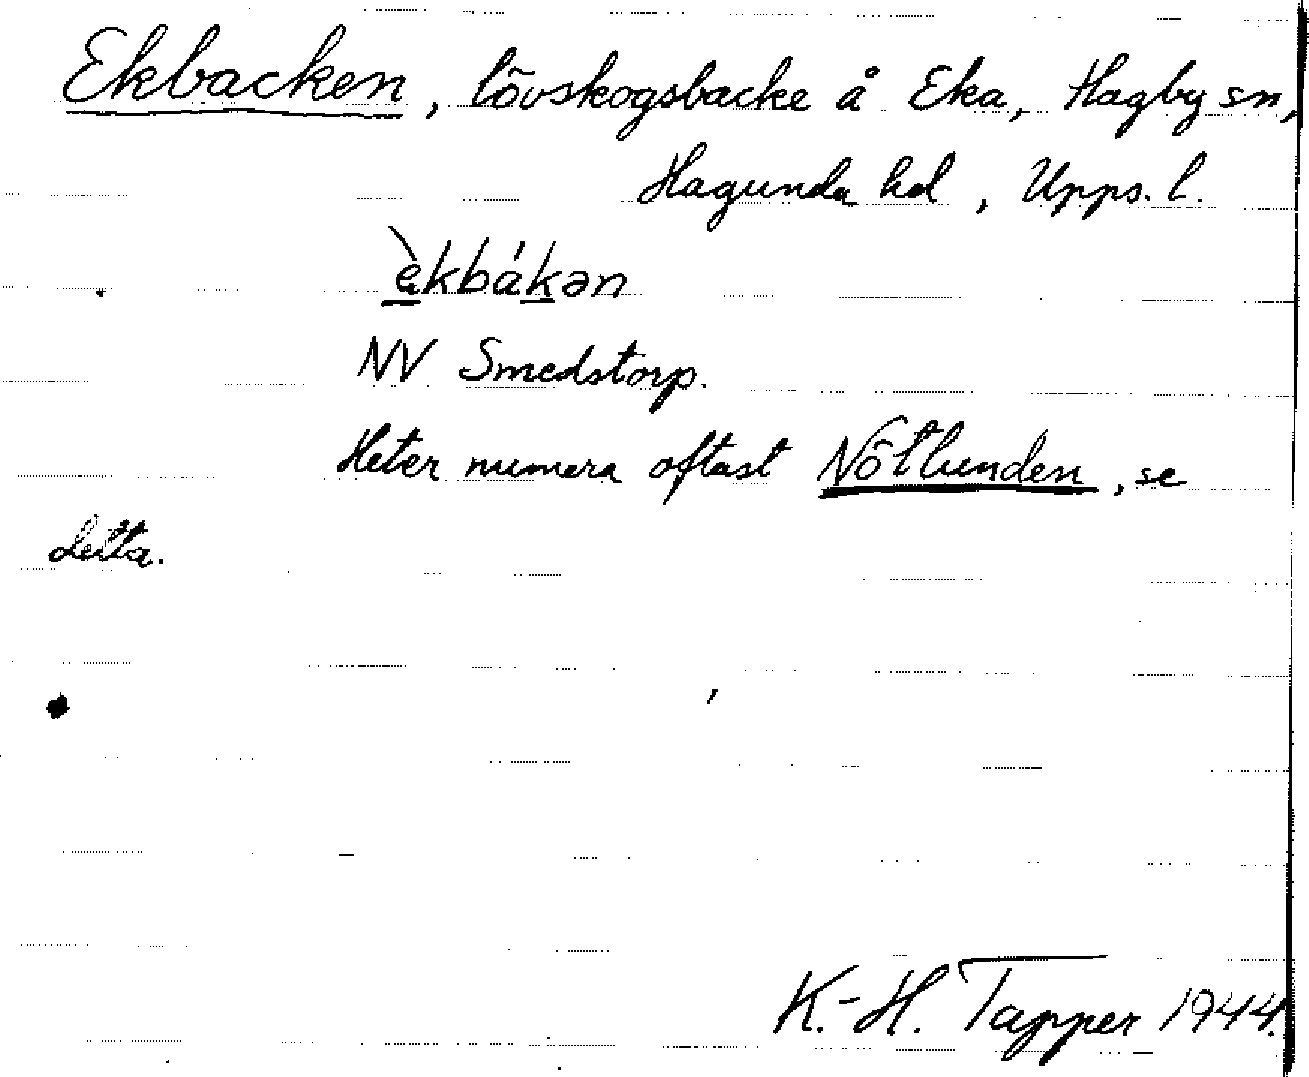 Ekbacken, lövskogsbacke å Eka, Hagby sn,
Hagunda hd, Upps. l.
èkbákən
NV Smedstorp.
Heter numera oftast Nötlunden, se
detta.
K.-H. Tapper 1944.